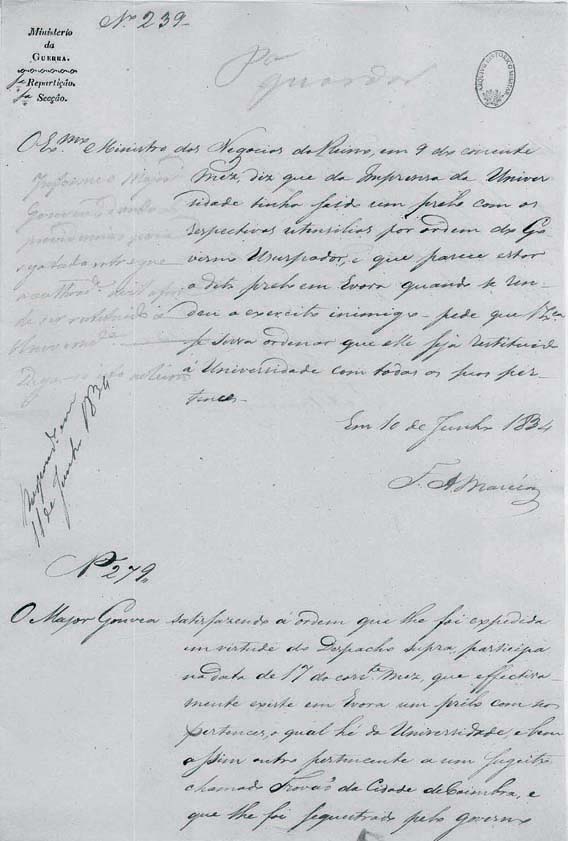 Nº 239
Ministerio
da
Guerra.
1ª Repartição.
1ª Secção.
Pª guardar
ARQUIVO HISTÓRICO MILITAR
O Exmº Ministro dos Negocios do Reino, em 9 do corrente
mez, diz que da Imprensa da Univer
sidade tinha saido um prélo com os
respectivos utensilios por ordem do Go
verno Usurpador, e que parece estar
o dito prélo em Evora quando se ren-
deu o exercito inimigo - pede que V. Exca
se sirva ordenar que elle seja restituido
á Universidade com todos os seus per-
tences.
Em 10 de Junho 1834
Informe o Major
Gouvea dando as
providencias para
ser restituido á
Respond.o em
11 de Junho 1834
Nº 279
O Major Gouvea satisfazendo á ordem que lhe foi expedida
em virtude do Despacho supra, participa
na data de 17 do corr.te mez, que effectiva-
mente existe em Evora um prélo com seus
pertences, o qual hé da Universidade, e bem
assim outro pertencente a um Sugeito
chamado Trovão da Cidade de Coimbra, e
que lhe foi sequestrado pelo governo